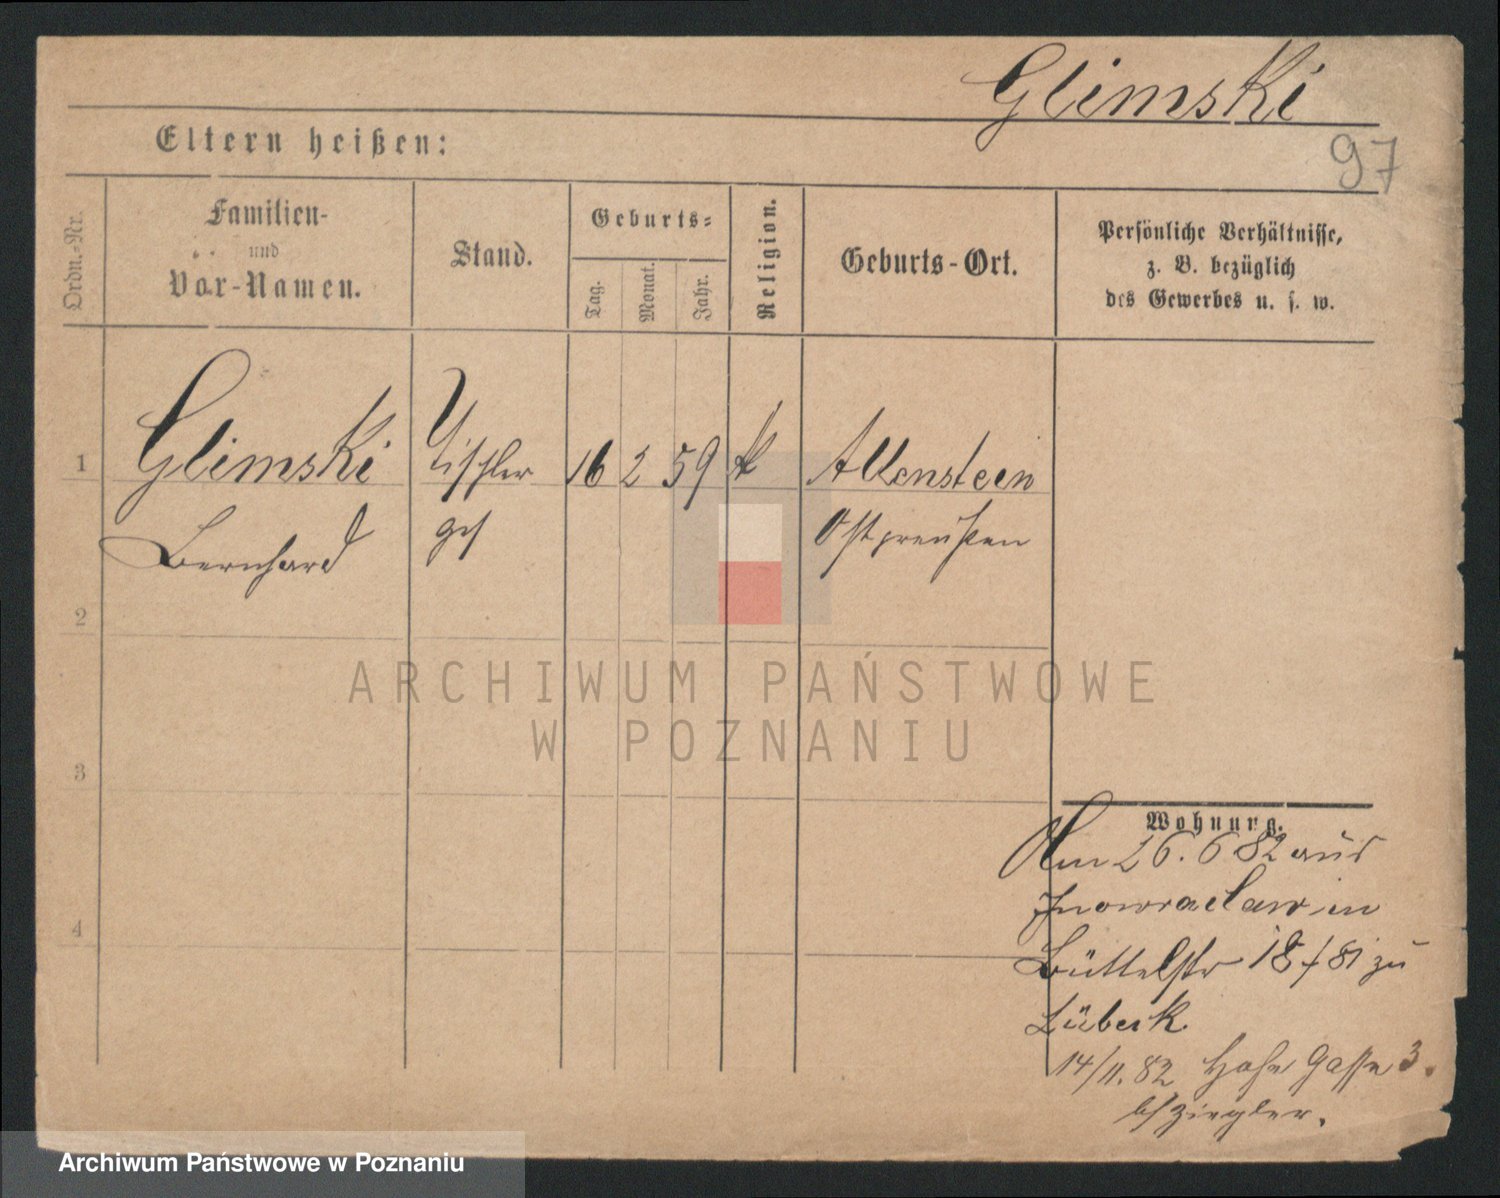 Glimski
97
Eltern heißen:
Ordn.-Nr.
Familien-
und
Vor-Namen.
Stand.
Geburts-
Tag.
Monat.
Jahr.
Religion.
Geburts-Ort.
Persönliche Verhältnisse,
z. B. bezüglich
des Gewerbes u. s. w.
1 Glimski Tischler 16 2 59 k Allenstein
Bernhard ges Ostpreußen
2
3
4
ARCHIWUM PAŃSTWOWE
W POZNANIU
Wohnung.
Am 26. 6 82 aus
Inowraclaw in
Büttelstr 18 / 81 zu
Lübeck.
14/11. 82 Hohe Gasse 3.
b/ Ziegler.
Archiwum Państwowe w Poznaniu